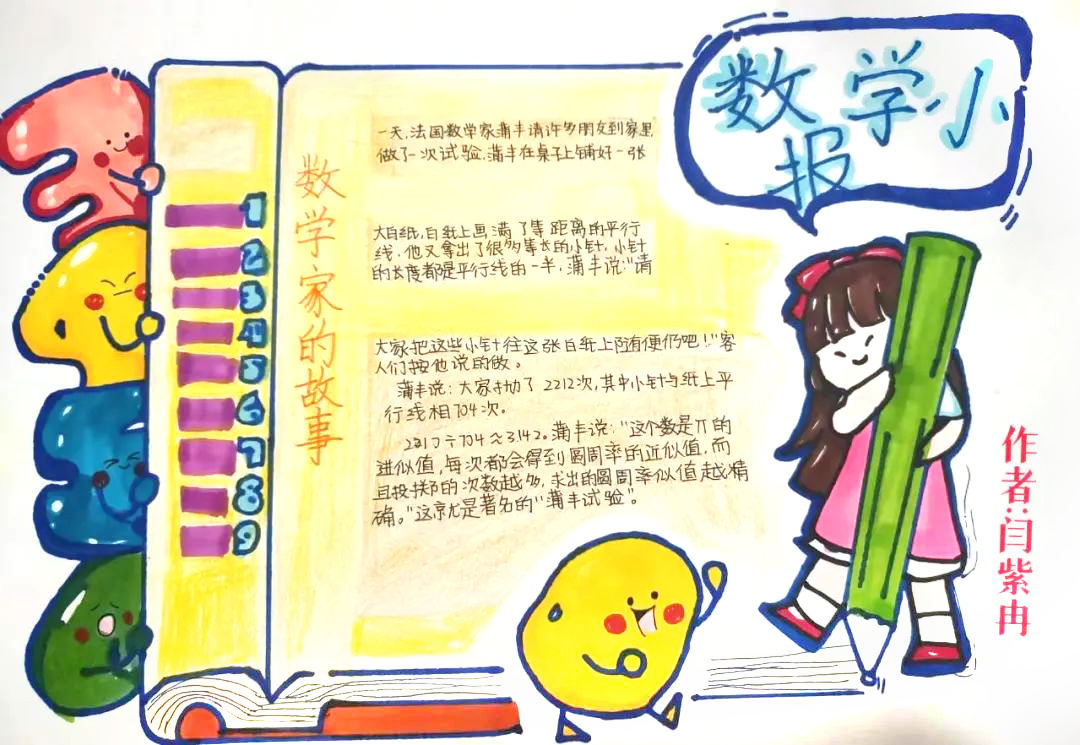 数学小
报
1
2
3
4
5
6
7
8
9
数学家的故事
一天,法国数学家蒲丰请许多朋友到家里
做了一次试验,蒲丰在桌子上铺好一张
大白纸,白纸上画满了等距离的平行
线,他又拿出了很多等长的小针,小针
的长度都是平行线的一半,蒲丰说:"请
大家把这些小针往这张白纸上随便仍吧!"客
人们按他说的做。
蒲丰说:大家共扔了2212次,其中小针与纸上平
行线相704次。
÷704≈3142。蒲丰说:"这个数是π的
进似值,每次都会得到圆周率的近似值,而
且投掷的次数越多,求出的圆周率似值越精
确。"这就是著名的"蒲丰试验"。
作者:闫紫冉